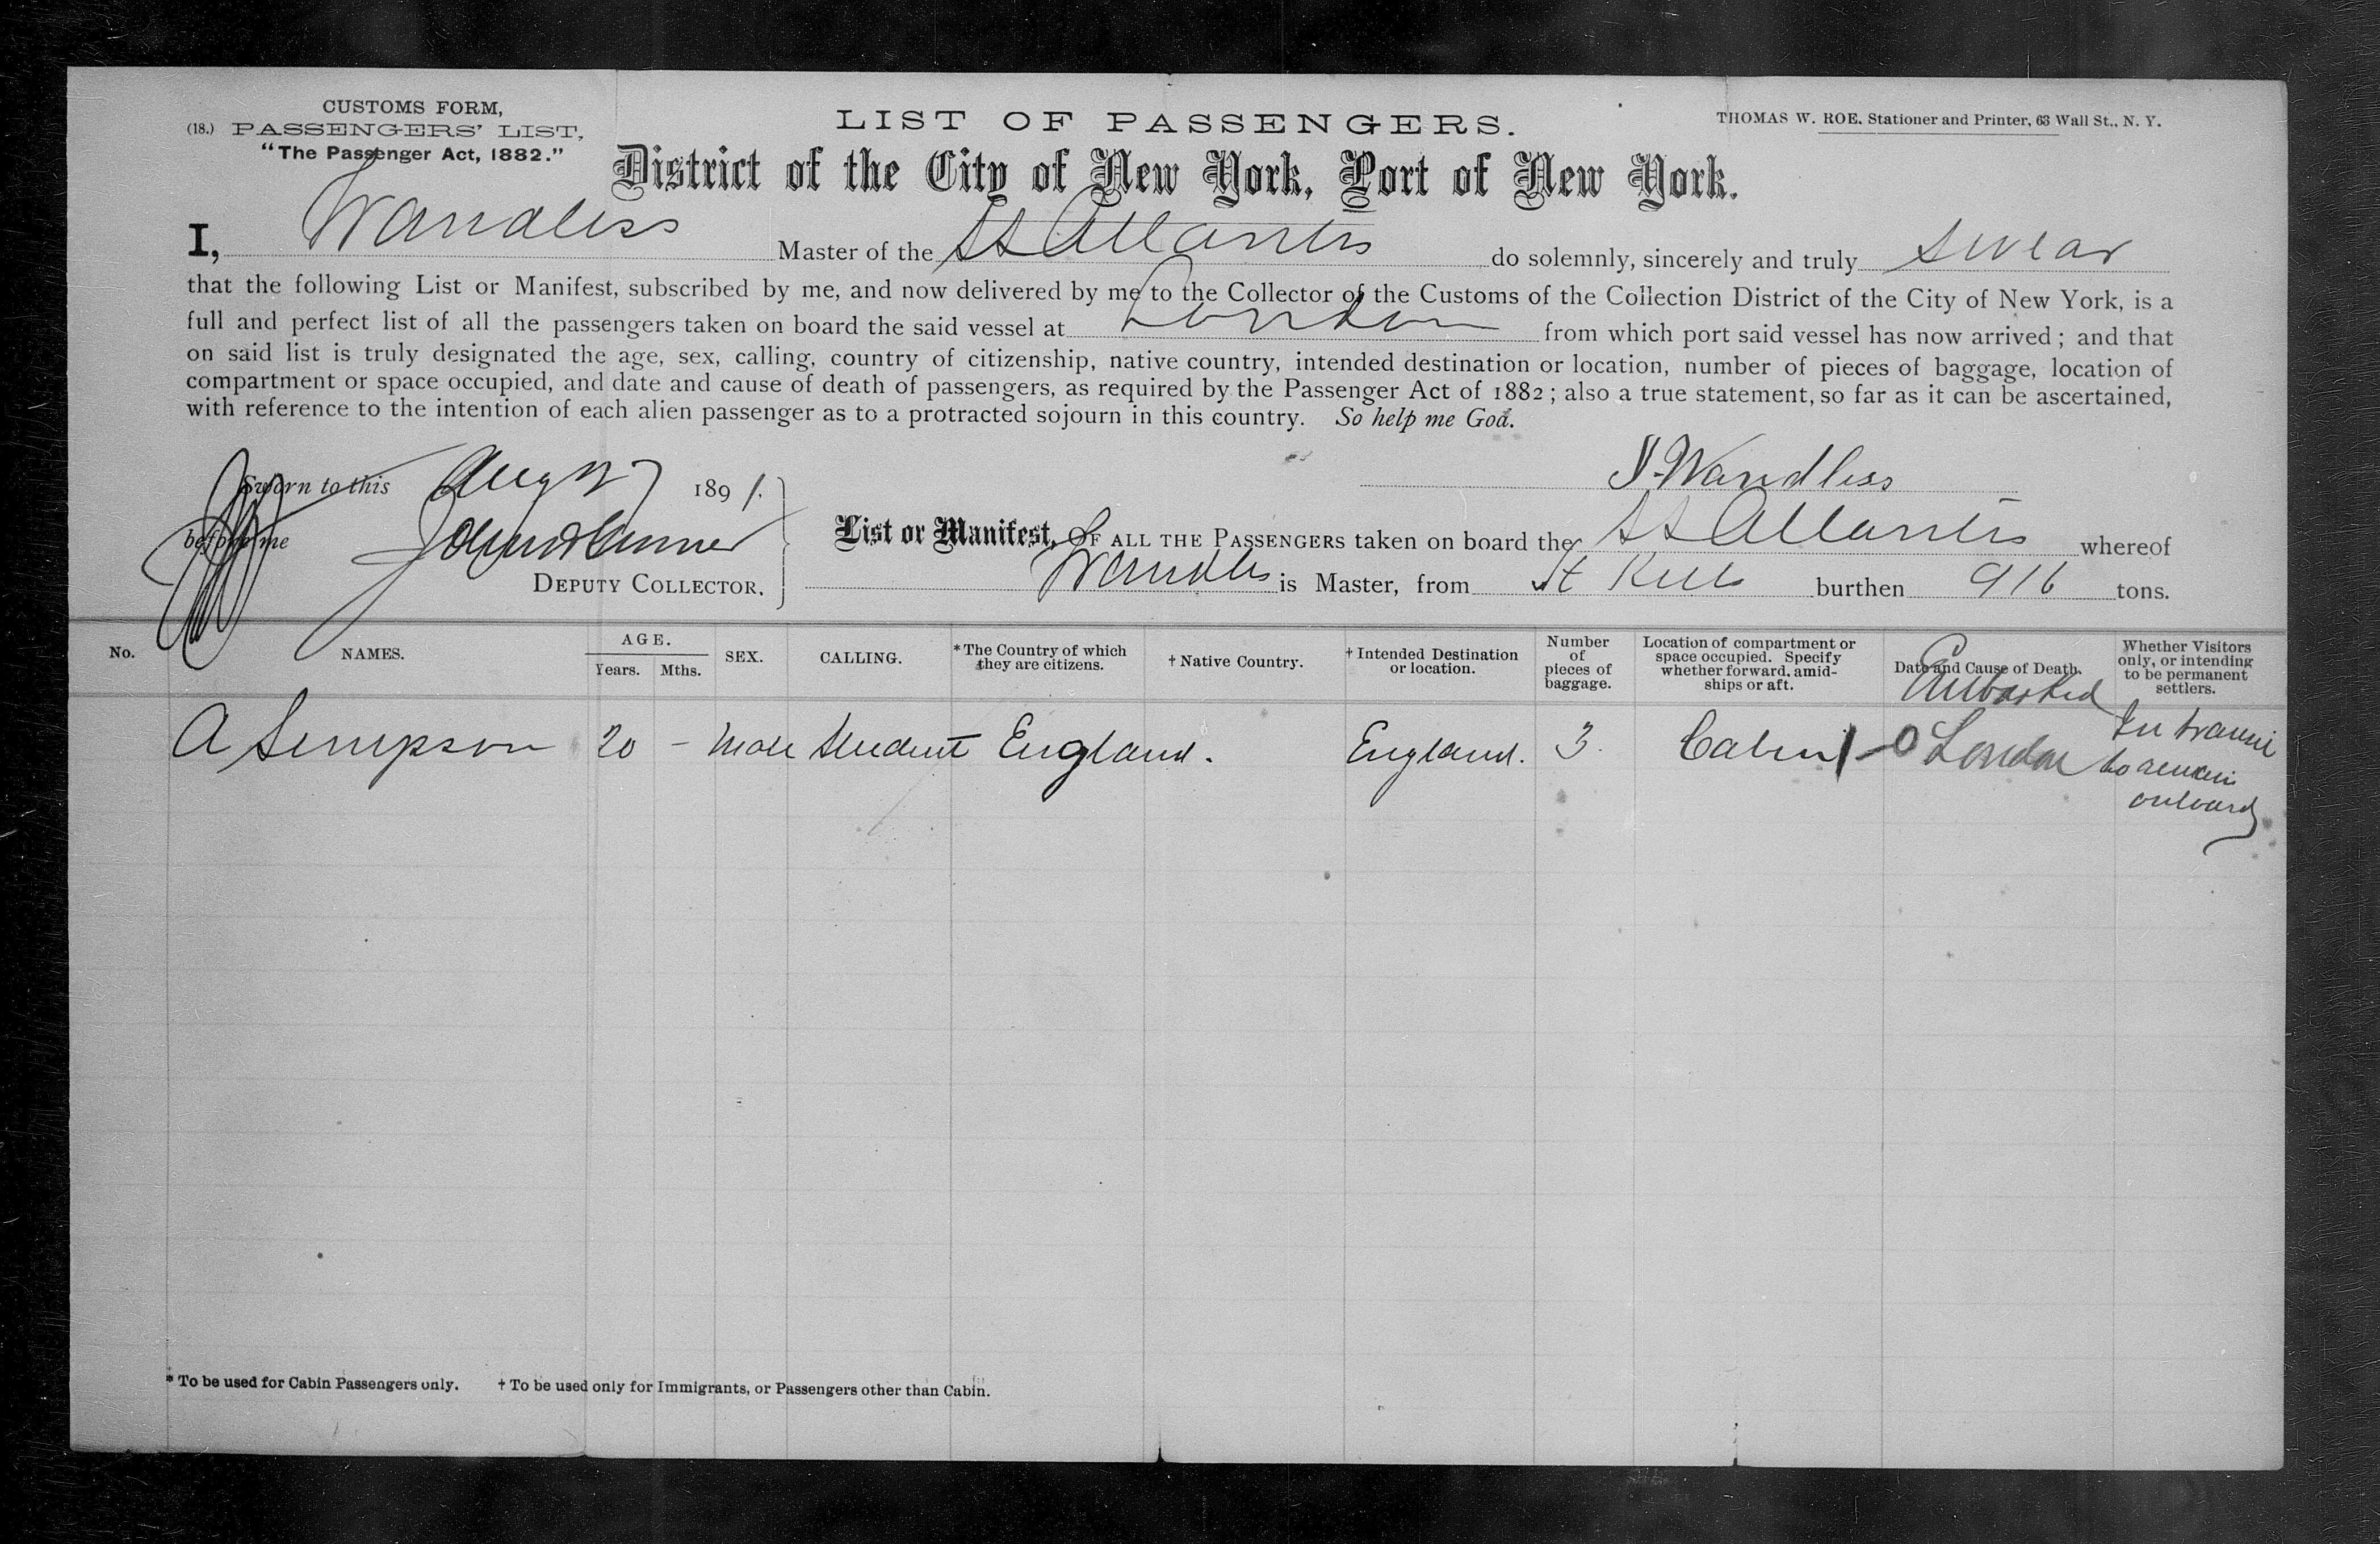 CUSTOMS FORM,
(18.) PASSENGERS' LIST,
"The Passenger Act, 1882."
LIST OF PASSENGERS.
THOMAS W. ROE, Stationer and Printer, 63 Wall St., N. Y.
District of the City of New York, Port of New York.
I, Wandless Master of the SS Atlantis do solemnly, sincerely and truly swear
that the following List or Manifest, subscribed by me, and now delivered by me to the Collector of the Customs of the Collection District of the City of New York, is a
full and perfect list of all the passengers taken on board the said vessel at London from which port said vessel has now arrived; and that
on said list is truly designated the age, sex, calling, country of citizenship, native country, intended destination or location, number of pieces of baggage, location of
compartment or space occupied, and date and cause of death of passengers, as required by the Passenger Act of 1882; also a true statement, so far as it can be ascertained,
with reference to the intention of each alien passenger as to a protracted sojourn in this country. So help me God.
Sworn to this Aug 1891.
J. Wandless
before me
List or Manifest, OF ALL THE PASSENGERS taken on board the SS Atlantis whereof
DEPUTY COLLECTOR.
Wandless is Master, from St Kitts burthen 916 tons.
No. NAMES. AGE. Years. Mths. SEX. CALLING. *The Country of which they are citizens. † Native Country. † Intended Destination or location. Number of pieces of baggage. Location of compartment or space occupied. Specify whether forward, amidships or aft. Date and Cause of Death. Whether Visitors only, or intending to be permanent settlers.
Embarked
A Simpson 20 - Male Student England. England. 3. Cabin London In transit
* To be used for Cabin Passengers only. † To be used only for Immigrants, or Passengers other than Cabin.